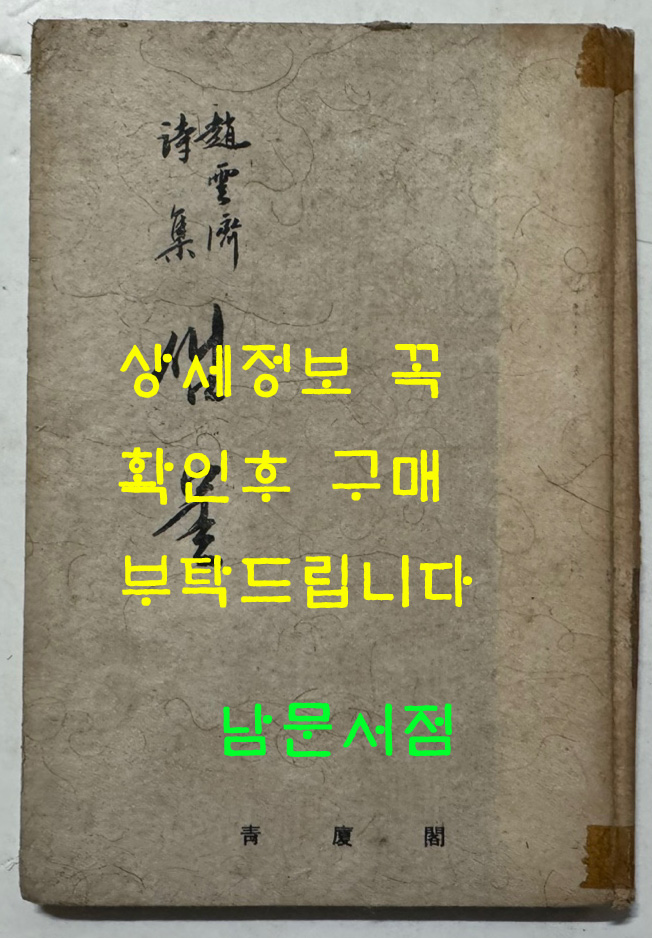 趙雲濟
詩集
상세정보 꼭
확인후 구매
부탁드립니다
남문서점
靑廈閣